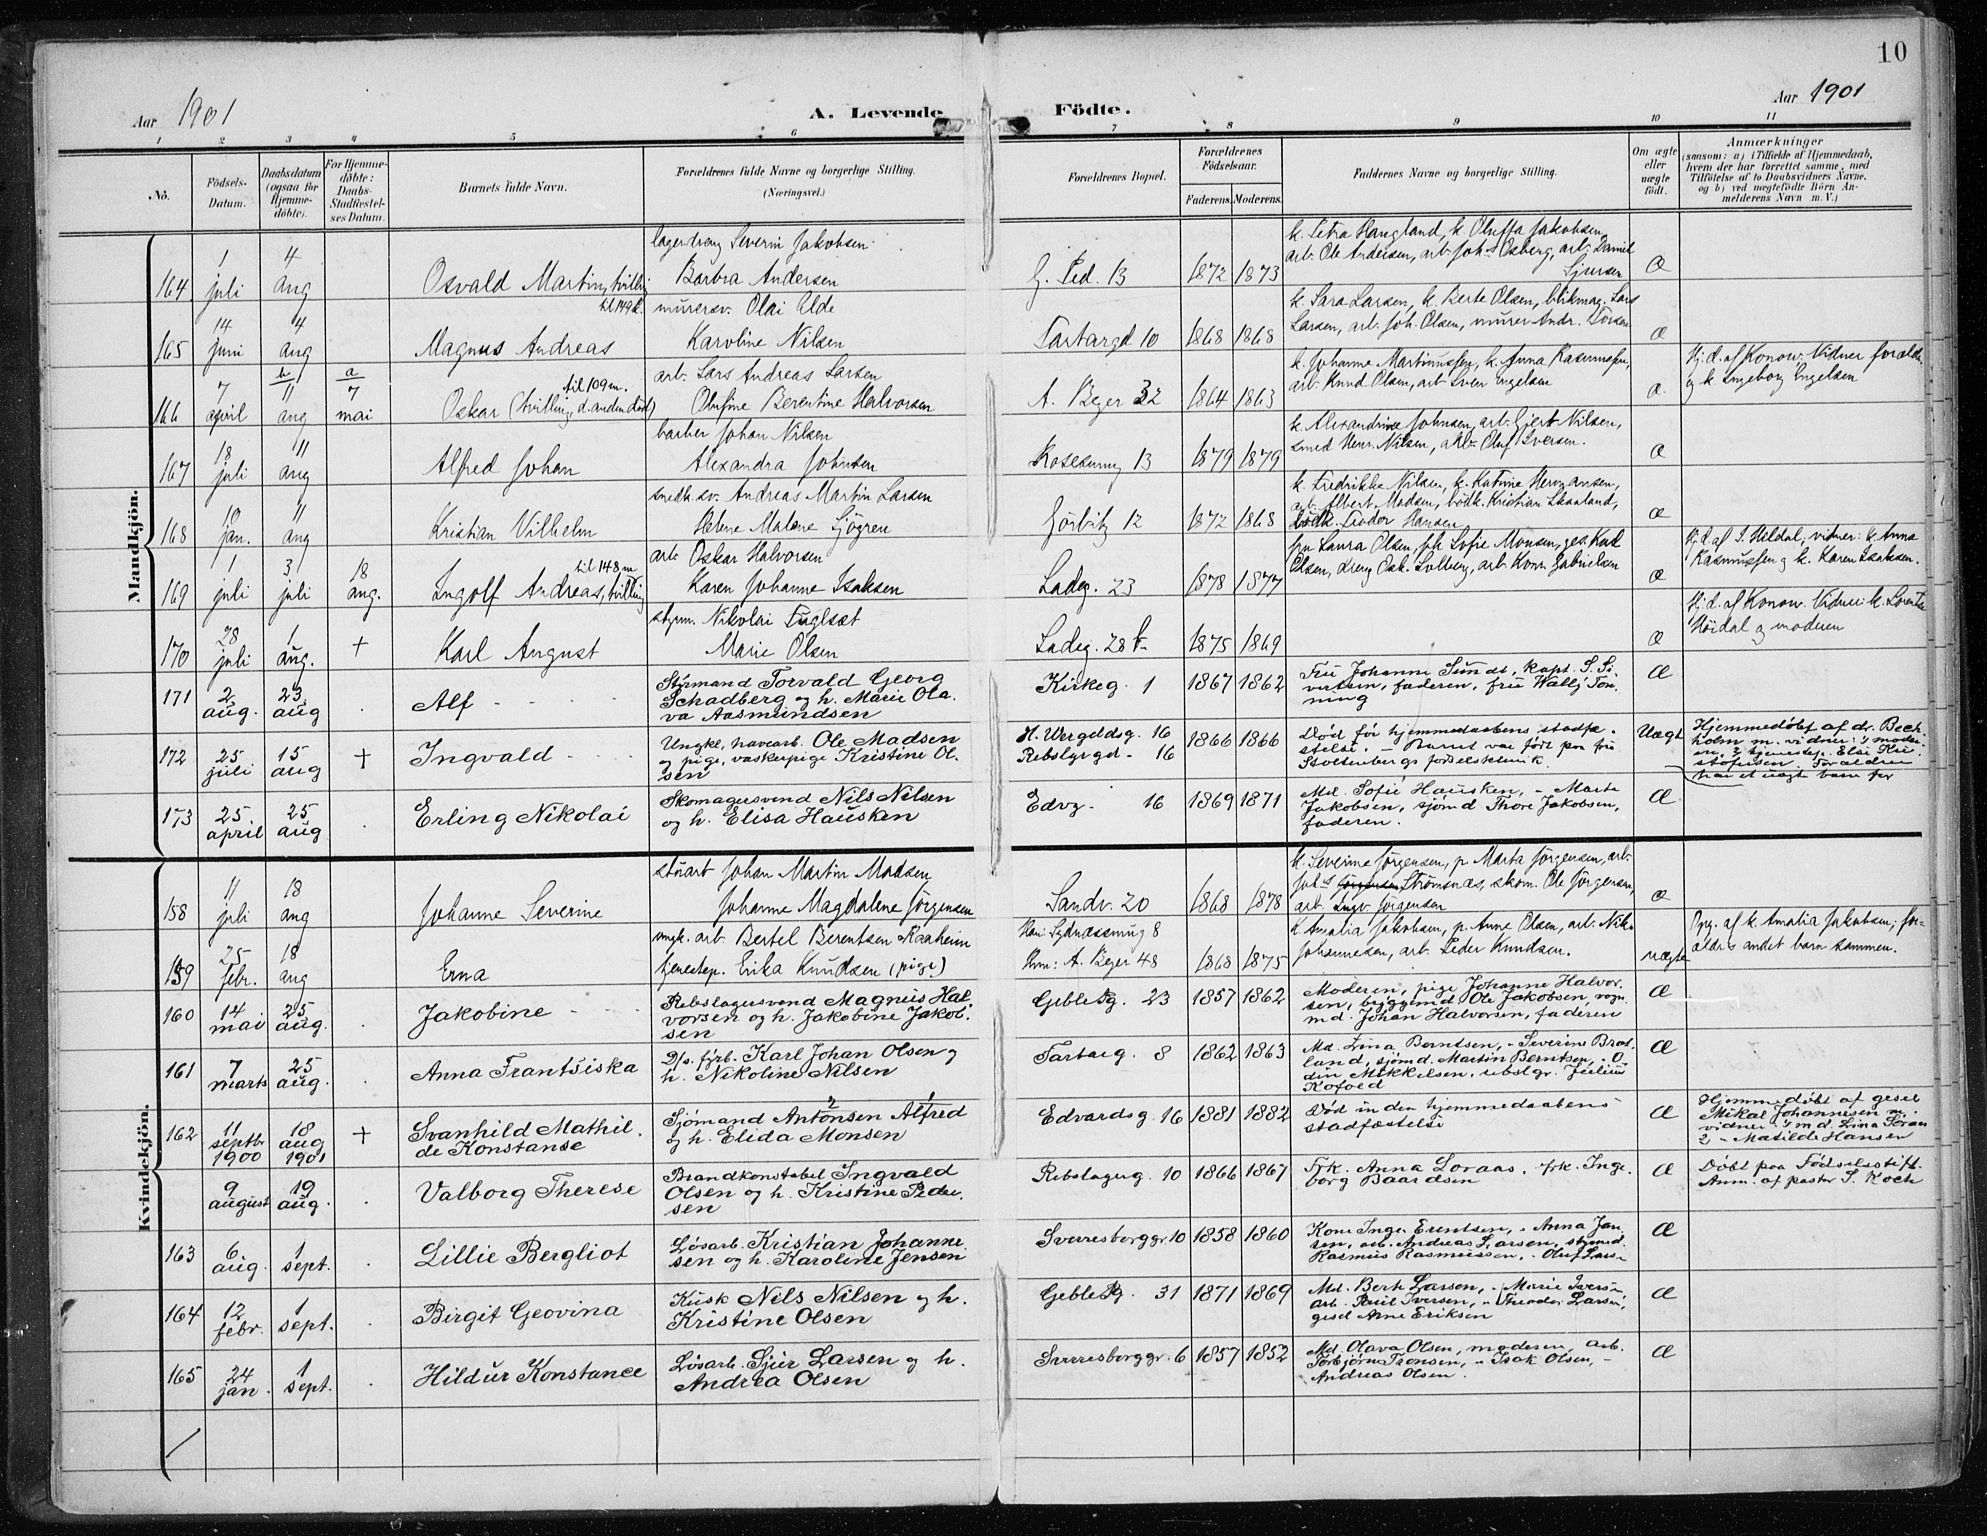 10
Aar 1901
A. Levende Födte.
Aar 1901
1 2 3 4 5 6 7 8 9 10 11
No.
Födsels-Datum.
Daabsdatum (ogsaa for Hjemme-döbte).
For Hjemme-döbte: Daabs-Stadfæstel-ses Datum.
Barnets fulde Navn.
Forældrenes fulde Navne og borgerlige Stilling. (Næringsvei.)
Forældrenes Bopæl.
Forældrenes Födselsaar.
Faderens. Moderens.
Faddernes Navne og borgerlige Stilling.
Om ægte eller uægte födt.
Anmærkninger
(saasom: a) i Tilfælde af Hjemmedaab, hvem der har forrettet samme, med Tilföielse af to Daabsvidners Navne, og b) ved uægtefödte Börn An-melderens Navn m. V.)
Mandkjön.
164 1 juli 4 aug Osvald Martin, tvilling til 149 k. lagerdreng Severin Jakobsen Barbra Andersen 13 1872 1873 arb. Ole Andersen, arb. Joh. Osberg, arb. Daniel Sjursen Æ
165 14 juni 4 aug Magnus Andreas murersv. Olai Alde Karoline Nilsen Tartargd 10 1868 1868 k. Sara Larsen, k. Berte Olsen, blikmag. Lars Larsen, arb. Joh. Olsen, murer Andr. Æ
166 7 april 11 aug 7 mai Oskar (tvilling, d. anden død) til 109 m. arb. Lars Andreas Larsen Olufine Berentine Halvorsen A. Beyer 32 1864 1863 k. Johanne Martinussen, k. Anna Rasmussen, arb. Knud Olsen, arb Sven Engelsen Æ Hj. d. af Konow. Vidner foræld. og k. Ingeborg Engelsen
167 18 juli 11 aug Alfred Johan barber Johan Nilsen Alexandra Johnsen 13 1879 1879 k. Alexandrine Johnsen, arb. Gjert Nilsen, smed Henr. Nilsen, arb. Oluf Iversen. Æ
168 jan. 11 aug Kristian Vilhelm smedk.sv. Andreas Martin Larsen Helene Malene Sjögren 12 1872 1868 k. Fredrikke Nilsen, k. Katrine Hermansen, arb. Albert Madsen, bödk. Kristian Skaaland, bödk. Hansen Æ
169 1 juli 31 juli 18 aug. Ingolf Andreas, tvilling til 148 m arb Oskar Halvorsen Karen Johanne Isaksen Ladeg. 23 1878 1877 fru Laura Olsen, Sofie Monsen, Olsen, dreng Osk. Solberg, arb. Konr. Gabrielsen Æ Hj. d. af S. Heldal, vidner: k. Anna Rasmussen og k. Karen Isaksen.
170 28 juli 1 aug. + Karl August styrm. Nikolai Fuglsæt Marie Olsen Ladeg. 28 b 1875 1869 Æ Hj. d. af Konow. Vidner: k. Høidal og moderen
171 2 aug. 23 aug Alf Styrmand Torvald Georg Schadberg og h. Marie Ola-va Aasmundsen Kirkeg. 1 1867 1862 Fru Johanne Sundt, kapt. S. Si-vertsen, faderen, fru Wallj Ton-ning Æ
172 25 juli 15 aug + Ingvald Ungkl, havearb. Ole Madsen og pige, vaskeripige Kristine Ol-sen H. Wergeldsg. 16 Rebslgrgd. 16 1866 1866 Død før hjemmedaabens stadfæ-stelse. - Barnet var født paa fru Stoltenbergs fødselsklinik. Uægt Hjemmedøbt af dr. Bech-holm m. vidner: 1/ moder-en, 2/ tjenestep. Else Kri-stofersen. Forældrene har et uægte barn før
173 25 april 25 aug Erling Nikolai Skomagersvend Nils Nilsen og h. Elisa Hausken Edvg. 16 1869 1871 Md. Sofie Hausken, - Marta Jakobsen, sjømd Thore Jakobsen, faderen. Æ
Kvindekjön.
158 11 juli 18 aug Johanne Severine stuart Johan Martin Madsen Johanne Magdalene Jørgensen Sandv. 20 1868 1878 k. Severine Jørgensen, p. Marta Jørgensen, arb. Joh.s Strømsnæs, skom. Ole Jørgensen, arb. Ingv. Jørgensen Æ
159 25 febr. 18 aug Erna ungk. arb. Bertel Berentsen Raaheim tjenestep. Erika Knudsen (pige) Han: Sydnæssmug 8 Hun: A. Beyer 48 1868 1875 k Amalia Jakobsen, p. Anne Olsen, arb. Nik. Johannesen, arb. Peder Knudsen. uægte Opg. af k. Amalia Jakobsen; for-ældre andet barn sammen.
160 14 mai 25 aug. Jakobine Rebslagersvend Magnus Hal-vorsen og h. Jakobine Jakob-sen Geblesg. 23 1857 1862 Moderen, pige Johanne Halvor-sen, byggemd Ole Jakobsen, vogn-md. Johan Halvorsen, faderen Æ
161 7 marts 25 aug. Anna Frantsiska D/s. fyrb. Karl Johan Olsen og h. Nikoline Nilsen Tartarg. 8 1862 1863 Md. Lina Berntsen, - Severine Brat-land, sjømd. Martin Berntsen, - O-din Mikkelsen, rebslgr. Julius Kofoed Æ
162 11 septbr 1900 18 aug 1901 + Svanhild Mathil-de Konstanse Sjømand Antonsen Alfred og h. Elida Monsen Edvardsg. 16 1881 1882 Død inden hjemmedaabens stadfæstelse Æ Hjemmedøbt af gesel Mikal Johannesen m. vidner: 1/ md. Lina 2 - Matilde Hansen
9 august 19 aug. Valborg Therese Brandkonstabel Ingvald Olsen og h. Kristine Peder-sen Rebslagerg. 10 1866 1867 Frk. Anna Loraas. - frk. Inge-borg Baardsen Æ Døbt paa Fødselsstift. Anm. af pastor S. Koch
163 6 aug. 1 sept. Lillie Bergliot Løsarb. Kristian Johanne-sen og h. Karoline Jensen Sverresborggr. 10 1858 1860 Kone Inger Erentsen, - Anna Jan-sen, arb. Andreas Larsen, styrmd. Rasmus Rasmussen, - Oluf Larsen Æ
164 12 febr. 1 sept. Birgit Geovina Kusk Nils Nilsen og h. Kristine Olsen Geblesg. 31 1871 1869 Md. Berte Larsen, - Marie Iversen, arb. Paul Iversen, - Theodor Larsen, gesel Arne Eriksen Æ
165 24 jan. 1 sept. Hildur Konstance Løsarb. Sjur Larsen og h. Andrea Olsen Sverresborggr. 6 1857 1852 Md. Olava Olsen, moderen, arb. Torbjørn Tronsen, - Isak Olsen, - Andreas Olsen. Æ